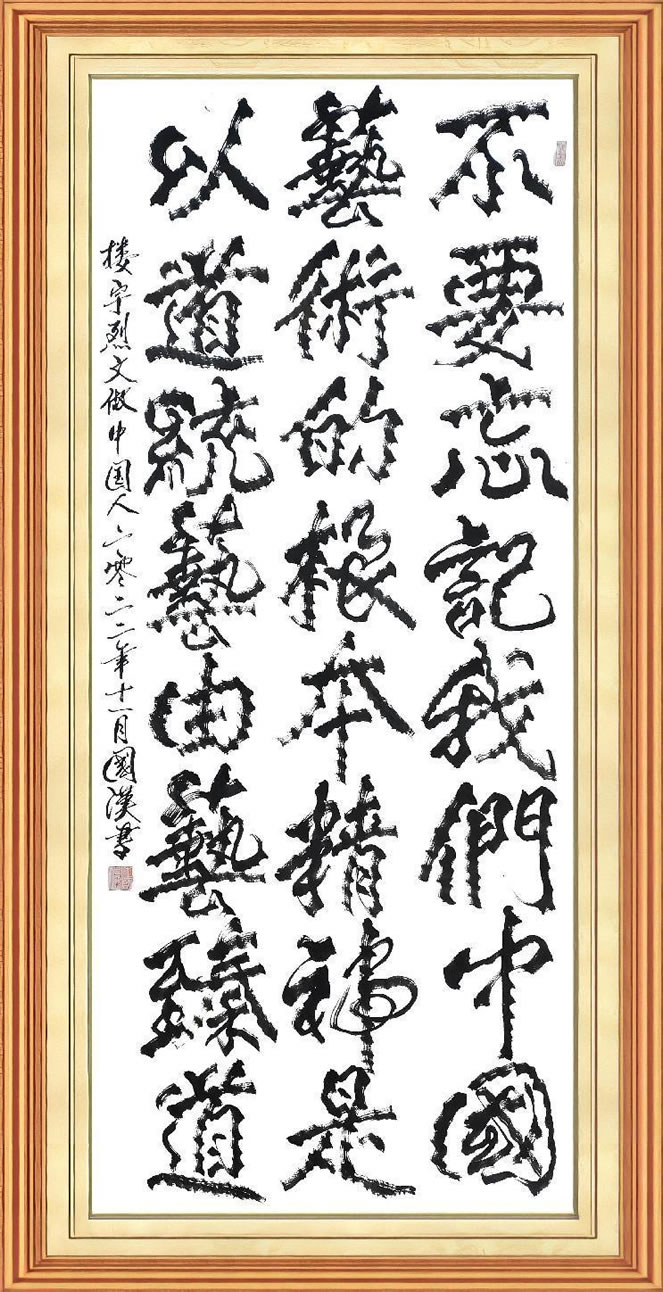 不要忘記我們中國
藝術的根本精神是
以道統藝由藝臻道
楼宇烈文做中国人二零二二年十一月國漢書